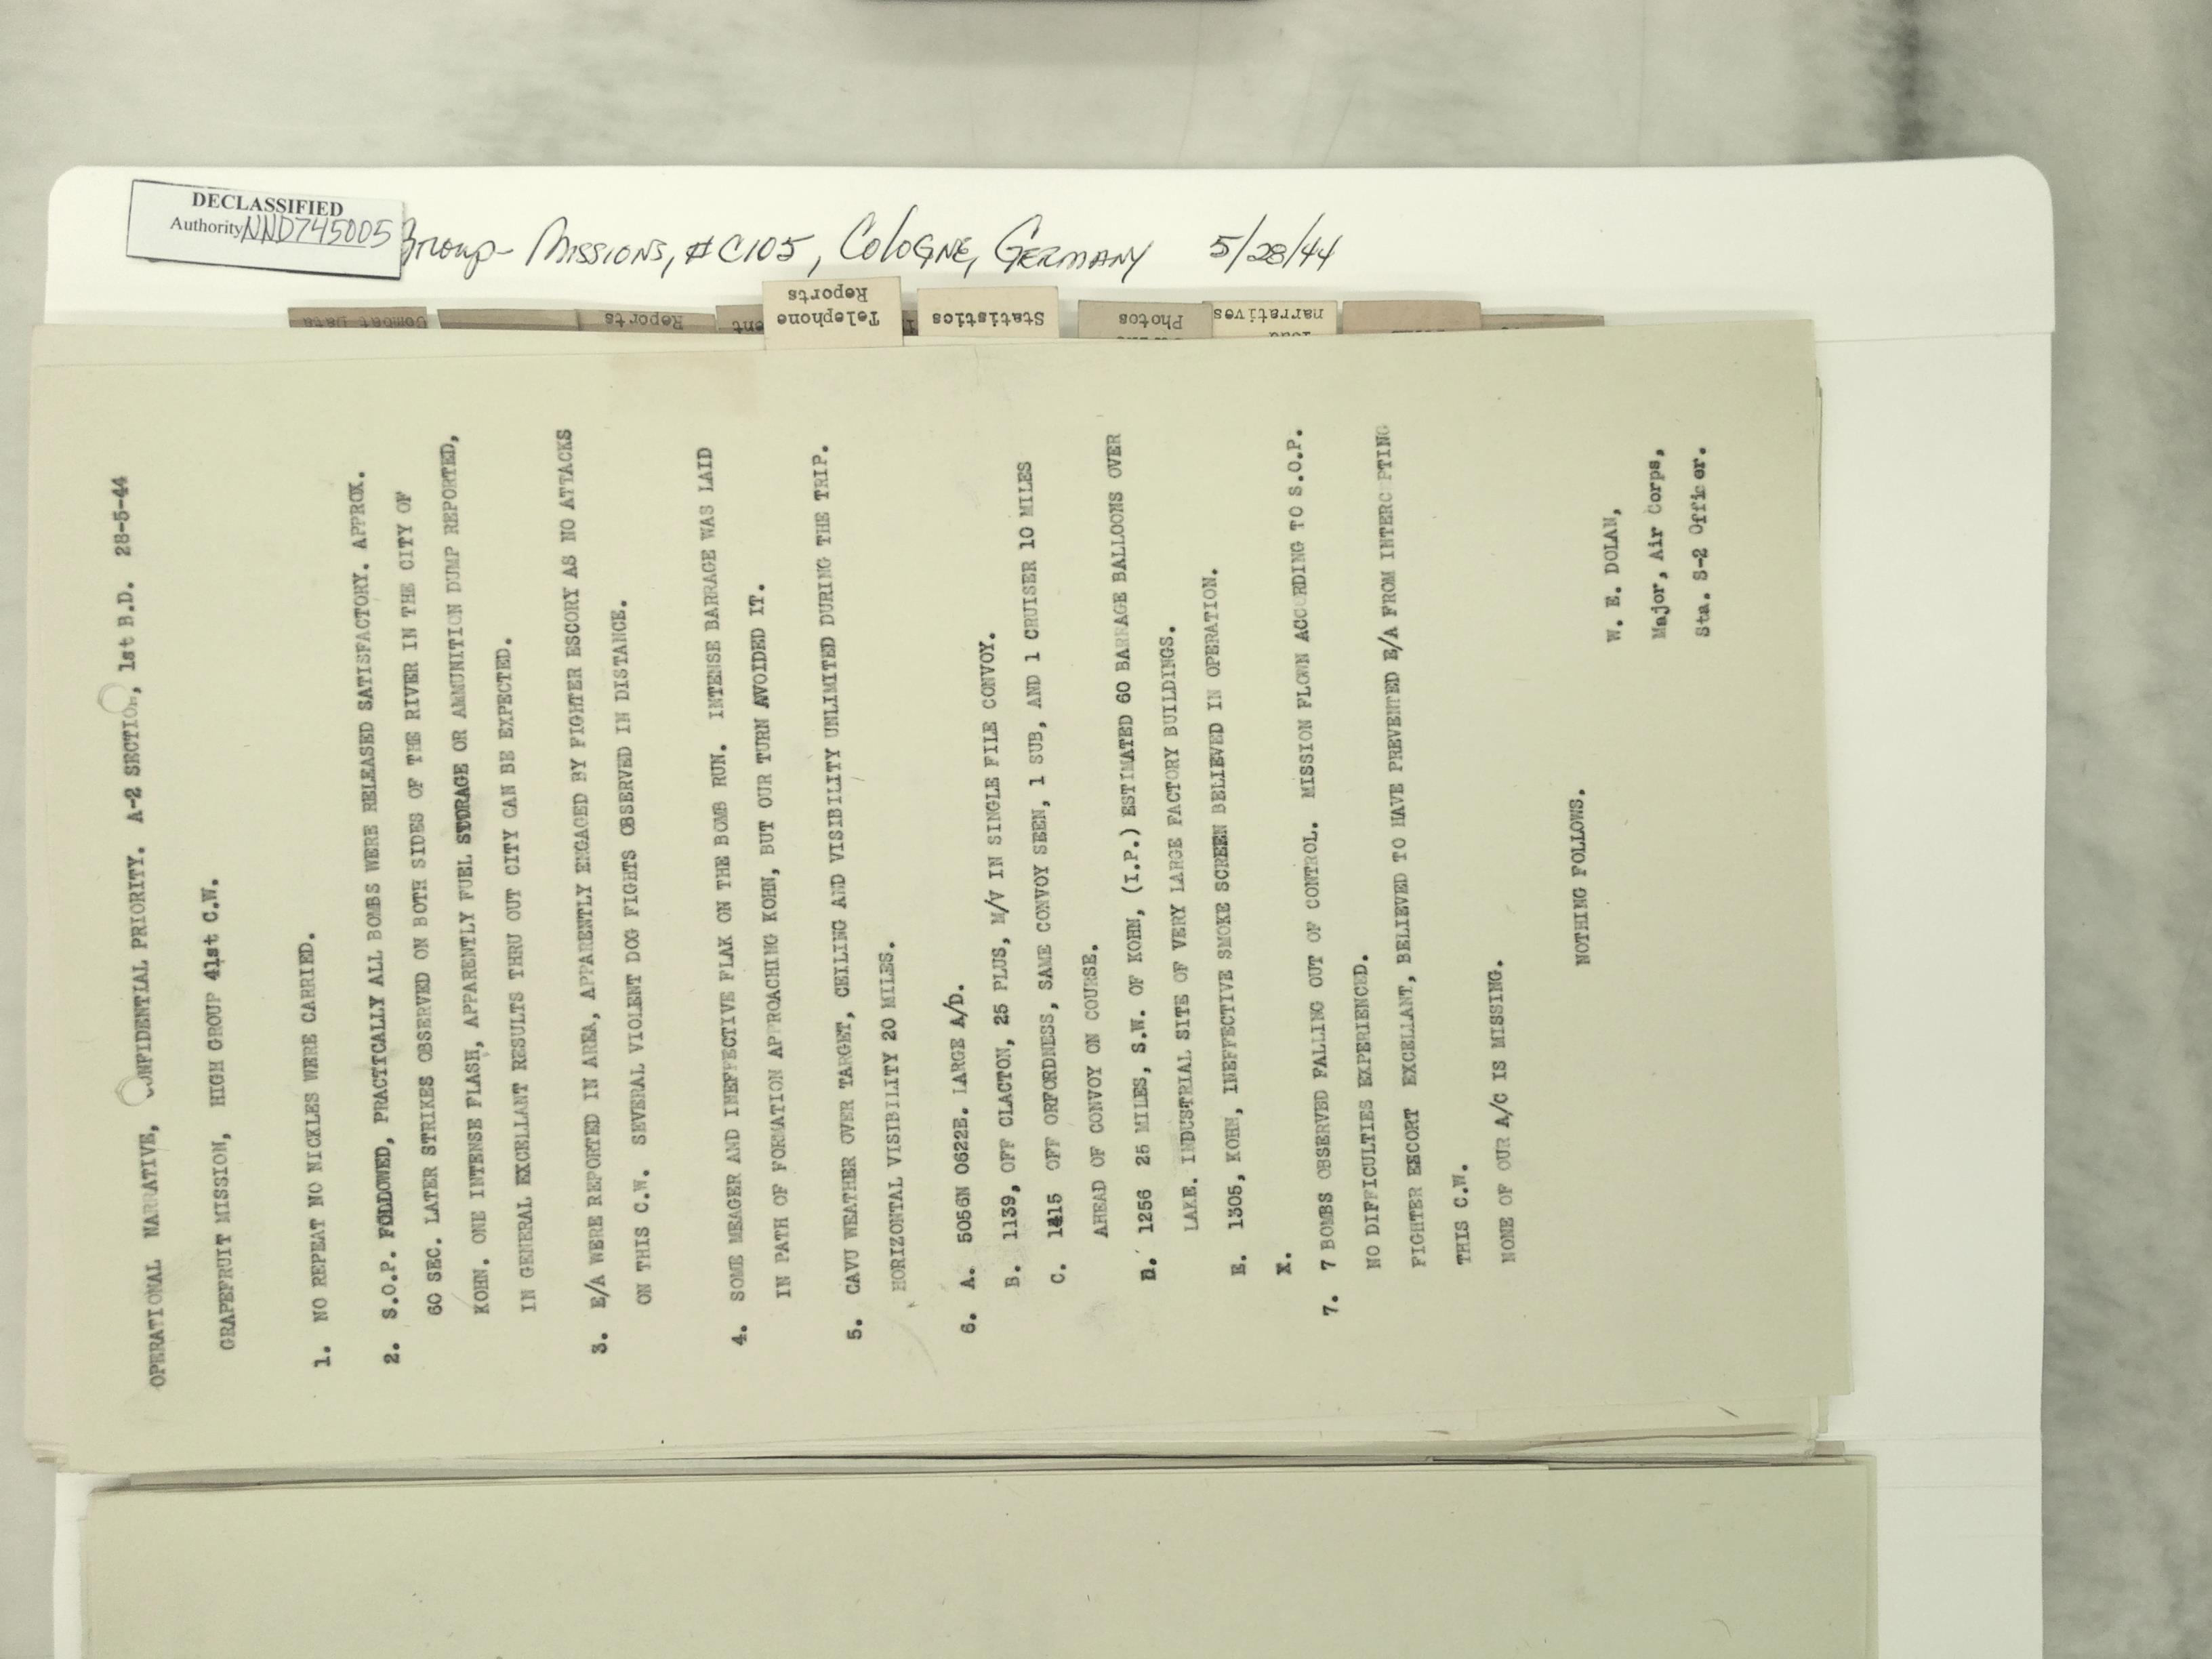 DECLASSIFIED
Authority NND745005
Group - Missions, #C105, Cologne, Germany 5/28/44
Combat Data
Reports
Telephone
Reports
Statistics
Photos
narratives
OPERATIONAL NARRATIVE, CONFIDENTIAL PRIORITY. A-2 SECTION, 1st B.D. 28-5-44
GRAPEFRUIT MISSION, HIGH GROUP 41st C.W.
1. NO REPEAT NO NICKLES WERE CARRIED.
2. S.O.P. FODDOWED, PRACTTCALLY ALL BOMBS WERE RELEASED SATISFACTORY. APPROX.
60 SEC. LATER STRIKES OBSERVED ON BOTH SIDES OF THE RIVER IN THE CITY OF
KOHN. ONE INTENSE FLASH, APPARENTLY FUEL STORAGE OR AMMUNITION DUMP REPORTED,
IN GENERAL EXCELLANT RESULTS THRU OUT CITY CAN BE EXPECTED.
3. E/A WERE REPORTED IN AREA, APPARENTLY ENGAGED BY FIGHTER ESCORY AS NO ATTACKS
ON THIS C.W. SEVERAL VIOLENT DOG FIGHTS OBSERVED IN DISTANCE.
4. SOME MEAGER AND INEFFECTIVE FLAK ON THE BOMB RUN. INTENSE BARRAGE WAS LAID
IN PATH OF FORMATION APPROACHING KOHN, BUT OUR TURN AVOIDED IT.
5. CAVU WEATHER OVER TARGET, CEILING AND VISIBILITY UNLIMITED DURING THE TRIP.
HORIZONTAL VISIBILITY 20 MILES.
6. A. 5056N 0622E. LARGE A/D.
B. 1139, OFF CLACTON, 25 PLUS, M/V IN SINGLE FILE CONVOY.
C. 1415 OFF ORFORDNESS, SAME CONVOY SEEN, 1 SUB, AND 1 CRUISER 10 MILES
AHEAD OF CONVOY ON COURSE.
D. 1256 25 MILES, S.W. OF KOHN, (I.P.) ESTIMATED 60 BARRAGE BALLOONS OVER
LAKE. INDUSTRIAL SITE OF VERY LARGE FACTORY BUILDINGS.
E. 1305, KOHN, INEFFECTIVE SMOKE SCREEN BELIEVED IN OPERATION.
X.
7. 7 BOMBS OBSERVED FALLING OUT OF CONTROL. MISSION FLOWN ACCORDING TO S.O.P.
NO DIFFICULTIES EXPERIENCED.
FIGHTER ESCORT EXCELLANT, BELIEVED TO HAVE PREVENTED E/A FROM INTERCEPTING
THIS C.W.
NONE OF OUR A/C IS MISSING.
NOTHING FOLLOWS.
W. E. DOLAN,
Major, Air Corps,
Sta. S-2 Officer.